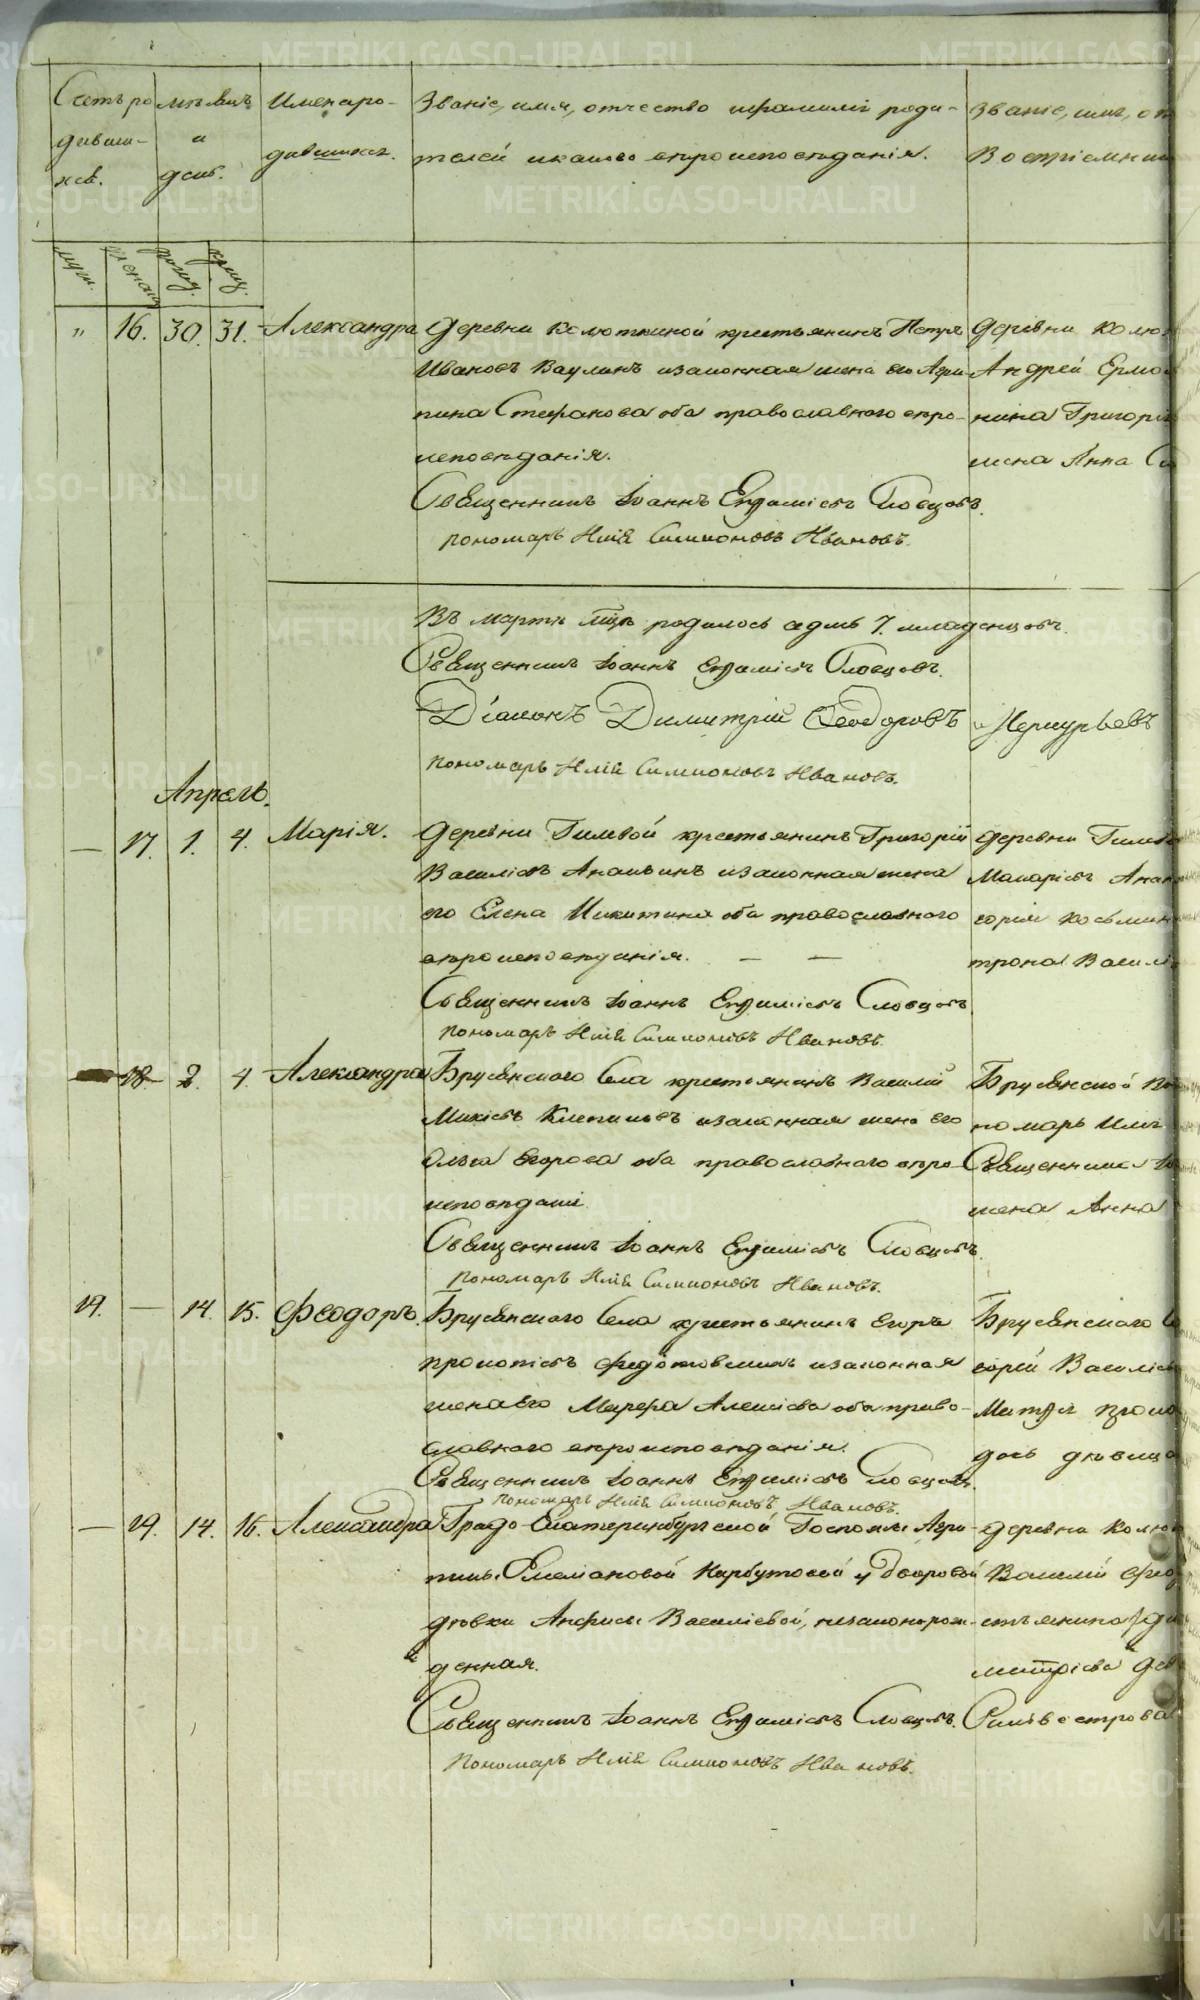 Счетъ ро
дивши-
хся.
мѣсяцъ
и
день.
Имена ро-
дившихся.
Званіе, имя, отчество и фамилія роди-
телей и какого вѣроисповѣданія.
Званіе, имя, от
Воспріемни
муж.
женск.
рожд.
крещ.
" 16. 30. 31. Александра
Деревни Колюткиной крестьянинъ Петръ
Ивановъ Ваулинъ и законная жена его Агри-
пина Стефанова оба православнаго вѣро-
исповѣданія.
Священникъ Іоаннъ Евфиміевъ Словцовъ.
Пономарь Илія Симионовъ Ивановъ.
Деревни Колю
Андрей Ермо
нина Григорі
жена Анна
Въ мартѣ мцѣ родилось седмь 7. младенцовъ.
Священникъ Іоаннъ Евфиміевъ Словцовъ.
Діаконъ Димитрій Ѳеодоровъ
Пономарь Илія Симионовъ Ивановъ.
Апрель.
— 17. 1. 4. Марія.
Деревни Гилевой крестьянинъ Григорій
Василіевъ Ананьинъ и законная жена
его Елена Никитина оба православнаго
вѣроисповѣданія. — —
Священникъ Іоаннъ Евфиміевъ Словцовъ
Пономарь Илія Симионовъ Ивановъ.
Деревни Гилев
Макаріевъ Анан
горія Косьмин
трона Василі
18. 2. 4. Александра
Брусянскаго Села крестьянинъ Василій
Михіевъ Клепиковъ и законная жена его
Ольга Егорова оба православнаго вѣро-
исповѣданія
Священникъ Іоаннъ Евфиміевъ Словцовъ.
Пономарь Илія Симионовъ Ивановъ.
Брусянской
номарь Илія
Священника Іо
жена Анна
19. — 14. 15. Феодоръ.
Брусянскаго Села крестьянинъ Егоръ
Прокопіевъ Федотовскихъ и законная
жена его Марфа Алексіева оба право-
славнаго вѣроисповѣданія.
Священникъ Іоаннъ Евфиміевъ Словцовъ.
Пономарь Илія Симионовъ Ивановъ.
Брусянскаго
горій Василіев
Матфія Проко
дось дѣвица
— 19. 14. 16. Александра
Градо-Екатеринбургской Госпожи Агри-
пины Емеліановой Карбутовой у дворовой
дѣвки Анфисы Василіевой, незаконорож-
денная.
Священникъ Іоаннъ Евфиміевъ Словцовъ.
Пономарь Илія Симионовъ Ивановъ.
деревни Колют
Василій Фео
стьянина
митріева дѣв
Сильвестрова
METRIKI.GASO-URAL.RU